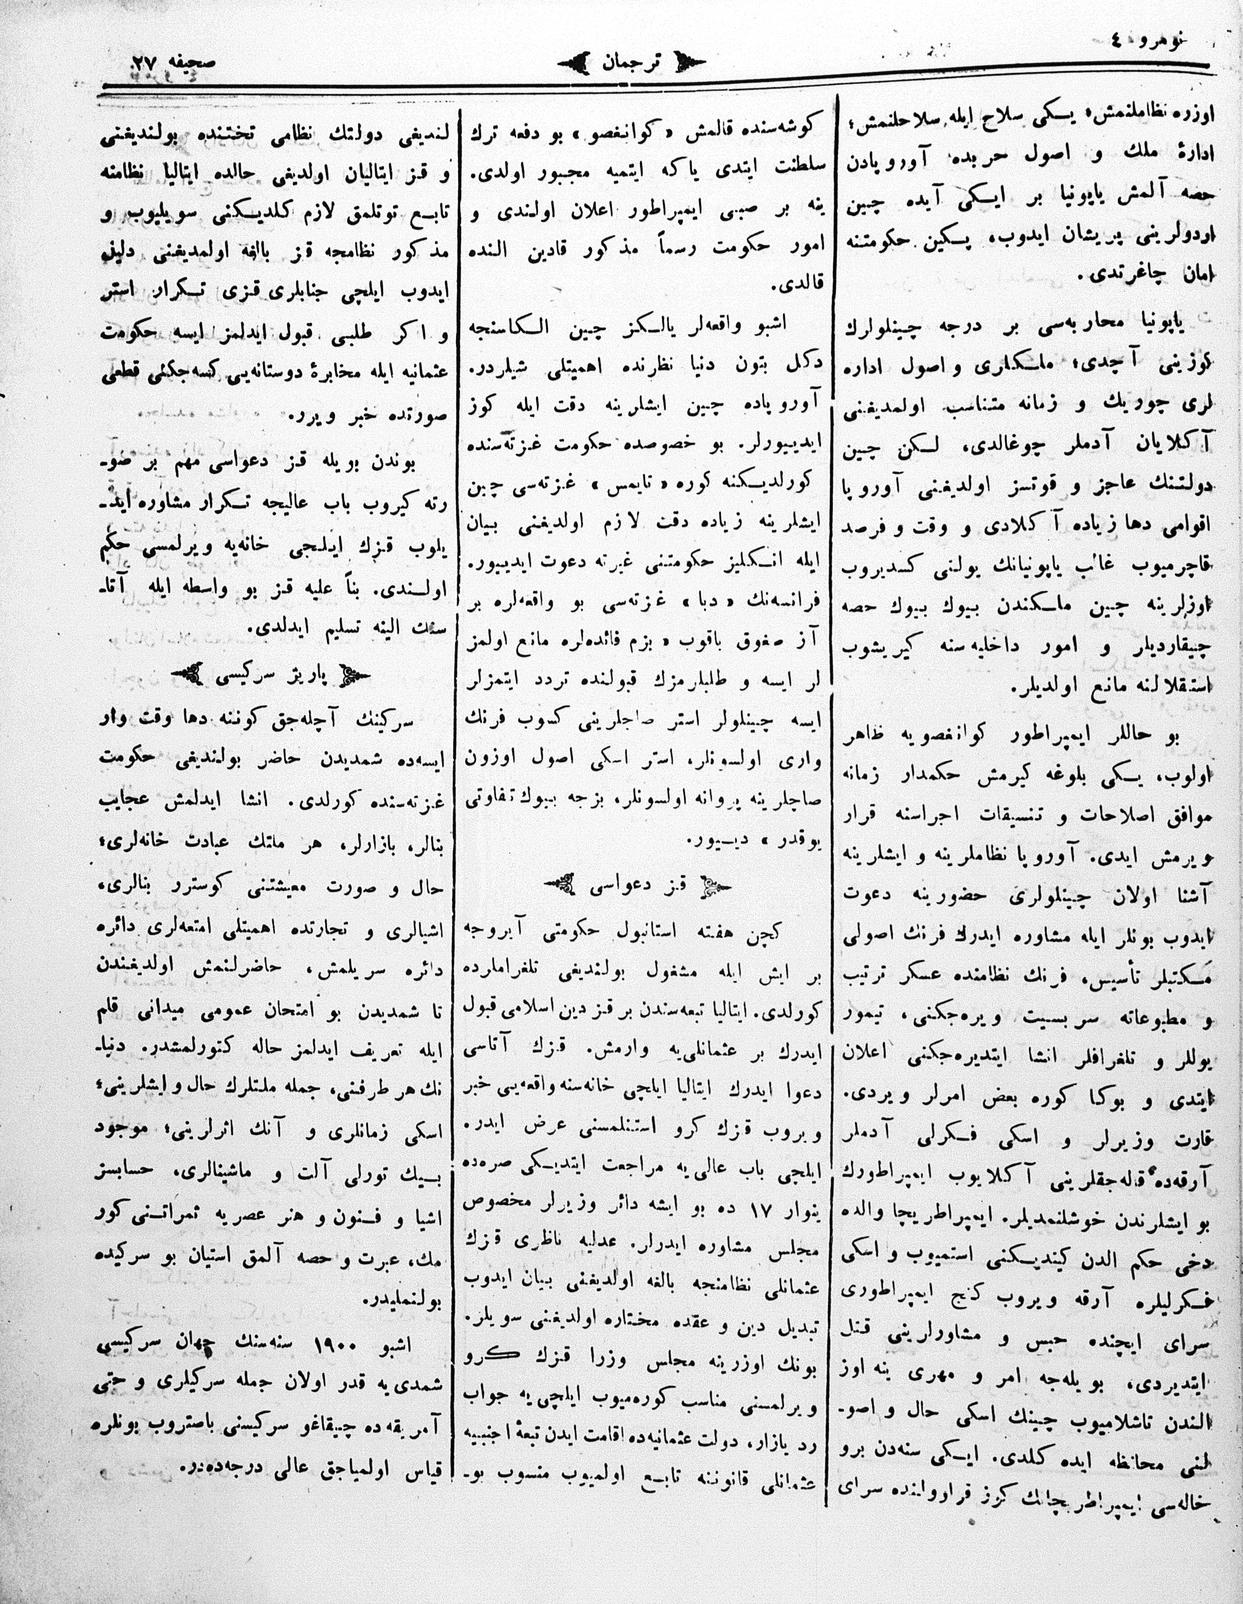 نومرو ٤
ترجمان
صحیفه ٢٧
اوزره نظاملنمش؛ یـکی سلاح ایله سلاحلنمش؛
ادارۀ ملك و اصول حربده آوروپادن
حصه آلمش یاپونیا بر ایـکی آیده چین
اردولرینی پریشان ایدوب، پـکین حکومتنه
امان چاغرتدی.
یاپونیا محاربه‌سی بر درجه چینلولرك
کوزینی آچدی؛ ملـکلری و اصول اداره
لری چوریك و زمانه متناسب اولمدیغنی
آکلایان آدملر چوغالدی، لـکن چین
دولتنك عاجز و قوتسز اولدیغنی آوروپا
اقوامی دها زیاده آکلادی و وقت و فرصد
قاچرمیوب غالب یاپونیانك یولنی کسدیروب
اوزلرینه چین ملـکندن بیوك بیوك حصه
چیقاردیلر و امور داخلیه‌سنه کیریشوب
استقلالنه مانع اولدیلر.
بو حاللر ایمپراطور کوانغصویه ظاهر
اولوب، یـکی بلوغه کیرمش حکمدار زمانه
موافق اصلاحات و تنسیقات اجراسنه قرار
ویرمش ایدی. آوروپا نظاملرینه و ایشلرینه
آشنا اولان چینلولری حضورینه دعوت
ایدوب بونلر ایله مشاوره ایدرك فرنك اصولی
مـکتبلر تأسیس، فرنك نظامنده عسکر ترتیب
و مطبوعاته سربسیت ویره‌جکنی، تیمور
یوللر و تلغرافلر انشا ایتدیره‌جکنی اعلان
ایتدی و بوکا کوره بعض امرلر ویردی.
قارت وزیرلر و اسکی فـکرلی آدملر
آرقه‌ده قاله‌جقلرینی آکلایوب ایمپراطورك
بو ایشلرندن خوشلنمدیلر. ایمپراطریچا والده
دخی حکم الدن کیندیـکنی استمیوب و اسکی
فـکرلیلره آرقه ویروب کنج ایمپراطوری
سرای ایچنده حبس و مشاورلرینی قتل
ایتدیردی، بویله‌جه امر و مهری ینه اوز
الندن تاشلامیوب چینك اسکی حال و اصو-
لنی محافظه ایده کلدی. ایـکی سنه‌دن برو
خاله‌سی ایمپراطریچانك کوز قراوولنده سرای
کوشه‌سنده قالمش «کوانغصو» بو دفعه ترك
سلطنت ایتدی یاکه ایتمیه مجبور اولدی.
ینه بر صبی ایمپراطور اعلان اولندی و
امور حکومت رسماً مذکور قادین النده
قالدی.
اشبو واقعه‌لر یالـکز چین الـکاسنجه
دکل بتون دنیا نظرنده اهمیتلی شیلردر.
آوروپاده چین ایشلرینه دقت ایله کوز
ایدییورلر. بو خصوصده حکومت غزته‌سنده
کورلدیـکنه کوره «تایمس» غزته‌سی چین
ایشلرینه زیاده دقت لازم اولدیغنی بیان
ایله انـکلیز حکومتنی غیرته دعوت ایدییور.
فرانسه‌نك «دبا» غزته‌سی بو واقعه‌لره بر
آز صغوق باقوب «بزم فائده‌لره مانع اولمز
لر ایسه و طلبلرمزك قبولنده تردد ایتمزلر
ایسه چینلولر استر صاچلرینی کسوب فرنك
واری اولسونلر، استر اسکی اصول اوزون
صاچلرینه پروانه اولسونلر، بزجه بیوك تفاوتی
یوقدر» دیـیور.
قـز دعواسی
کچن هفته استانبول حکومتی آیروجه
بر ایش ایله مشغول بولندیغی تلغرامارده
کورلدی. ایتالیا تبعه‌سندن بر قـز دین اسلامی قبول
ایدرك بر عثمانلی‌یه وارمش. قـزك آتاسی
دعوا ایدرك ایتالیا ایلچی خانه‌سنه واقعه‌یی خبر
ویروب قـزك کرو استنلمسنی عرض ایدر.
ایلچی باب عالی‌یه مراجعت ایتدیـکی صره‌ده
ینوار ١٧ ده بو ایشه دائر وزیرلر مخصوص
مجلس مشاوره ایدرلر. عدلیه ناظری قـزك
عثمانلی نظامنجه بالغه اولدیغنی بیان ایدوب
تبدیل دین و عقده مختاره اولدیغنی سویلر.
بونك اوزرینه مجلس وزرا قـزك کرو
ویرلمسنی مناسب کوره‌میوب ایلچی‌یه جواب
رد یازار، دولت عثمانیه‌ده اقامت ایدن تبعۀ اجنبیه
عثمانلی قانوننه تابـع اولمیوب منسوب بو-
لندیغی دولتك نظامی تختنده بولندیغنی
و قـز ایتالیان اولدیغی حالده ایتالیا نظامنه
تابـع توتلمق لازم کلدیـکنی سویلیوب و
مذکور نظامجه قـز بالغه اولمدیغنی دلیل
ایدوب ایلچی جنابلری قـزی تـکرار استر
و اکر طلبی قبول ایدلمز ایسه حکومت
عثمانیه ایله مخابرۀ دوستانه‌یی کسه‌جکنی قطعی
صورتده خبر ویرر.
بوندن بویله قـز دعواسی مهم بر صو-
رته کیروب باب عالیجه تـکرار مشاوره ایدـ
یلوب قـزك ایلچی خانه‌یه ویرلمسی حکم
اولـندی. بناً علیه قـز بو واسطه ایله آتا-
سنك الینه تسلیم ایدلدی.
پاریژ سرکیسی
سرکینك آچله‌جق کوننه دها وقت وار
ایسه‌ده شمدیدن حاضر بولندیغی حکومت
غزته‌سنده کورلدی. انشا ایدلمش عجایب
بنالر، بازارلر، هر ملتك عبادت خانه‌لری؛
حال و صورت معیشتنی کوسترر بنالری،
اشیالری و تجارتده اهمیتلی امتعه‌لری دائره
دائره سریلمش، حاضرلنمش اولدیغندن
تا شمدیدن بو امتحان عمومی میدانی قلم
ایله تعریف ایدلمز حاله کتورلمشدر. دنیا-
نك هر طرفنی، جمله ملتلرك حال و ایشلرینی؛
اسکی زمانلری و آنك اثرلرینی؛ موجود
بـیك تورلی آلت و ماشینالری، حسابسز
اشیا و فـنون و هنر عصریه ثمراتـنی کور
مك، عبرت و حصه آلمق استیان بو سرکیده
بولنملیدر.
اشبو ١٩٠٠ سنه‌سنك جهان سرکیسی
شمدی‌یه قدر اولان جمله سرکیلری و حتی
آمریقه‌ده چیقاغو سرکیسنی باصتروب بونلره
قیاس اولمیاجق عالی درجه‌ده‌در.